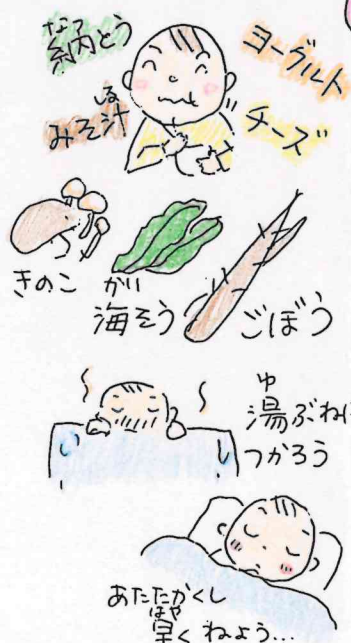 なっ
納とう
ヨーグルト
みそ汁
しる
チーズ
きのこ
かい
海そう
ごぼう
ゆ
湯ぶねに
つかろう
あたたかくし
はや
早くねよう…